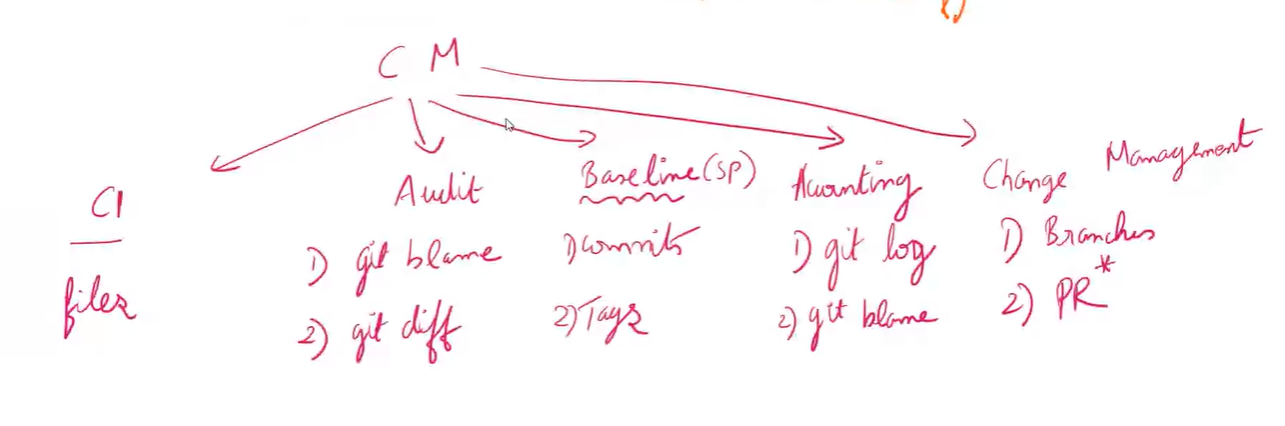 C M
CI
files
Audit
1) git blame
2) git diff
Baseline (SP)
1) commits
2) Tags
Accounting
1) git log
2) git blame
Change Management
1) Branches
2) PR*